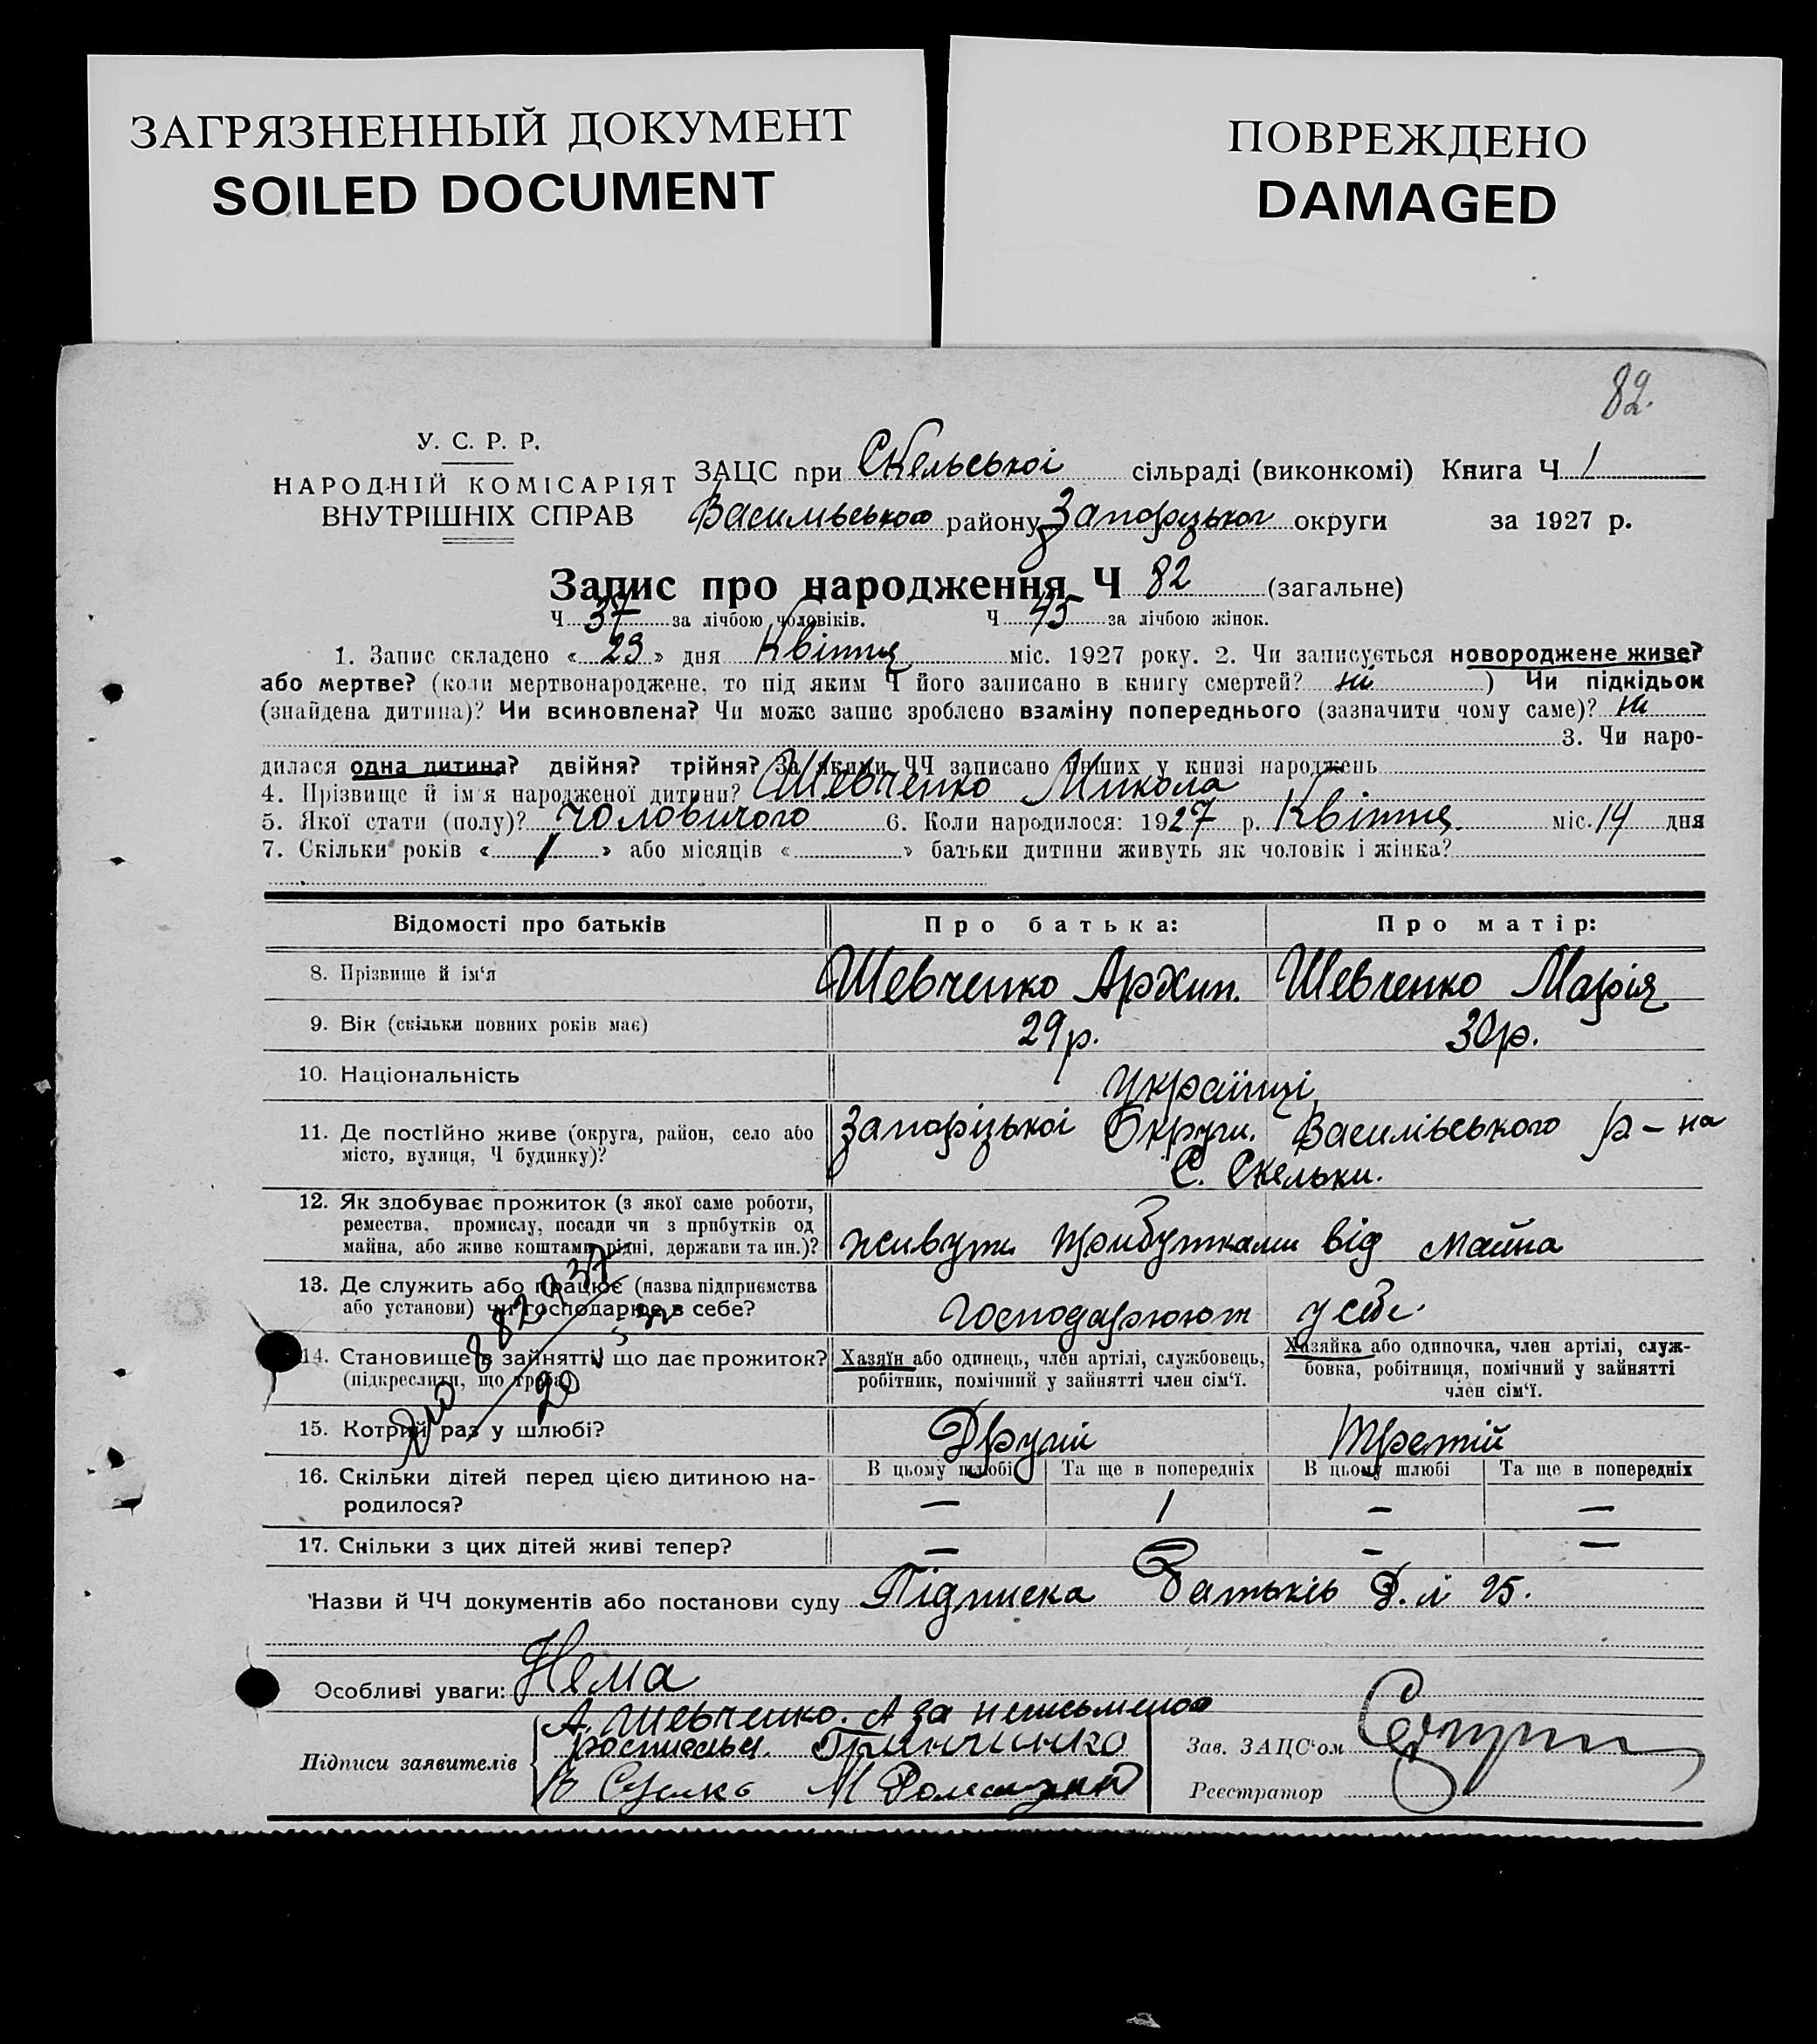 ЗАГРЯЗНЕННЫЙ ДОКУМЕНТ
SOILED DOCUMENT
ПОВРЕЖДЕНО
DAMAGED
82.
У. С. Р. Р.
НАРОДНІЙ КОМІСАРІЯТ
ВНУТРІШНІХ СПРАВ
ЗАЦС при Скельської сільраді (виконкомі) Книга Ч 1
Васильського району Запорізької округи за 1927 р.
Запис про народження Ч 82 (загальне)
Ч 37 за лічбою чоловіків. Ч 45 за лічбою жінок.
1. Запис складено « 23 » дня Квітня міс. 1927 року. 2. Чи записується новороджене живе?
або мертве? (коли мертвонароджене, то під яким Ч його записано в книгу смертей? ні ) Чи підкідьок
(знайдена дитина)? Чи всиновлена? Чи може запис зроблено взаміну попереднього (зазначити чому саме)? ні
3. Чи наро-
дилася одна дитина? двійня? трійня? За якими ЧЧ записано инших у книзі народжень
4. Прізвище й ім'я народженої дитини? Шевченко Микола
5. Якої стати (полу)? Чоловичого 6. Коли народилося: 1927 р. Квітня міс. 14 дня
7. Скільки років « 1 » або місяців « » батьки дитини живуть як чоловік і жінка?
Відомості про батьків
Про батька:
Про матір:
8. Прізвище й ім'я
Шевченко Архип.
Шевченко Марія
9. Вік (скільки повних років має)
29 р.
30 р.
10. Національність
Українці
11. Де постійно живе (округа, район, село або
місто, вулиця, Ч будинку)?
Запорізької Округи. Василівського р-на
С. Скельки.
12. Як здобуває прожиток (з якої саме роботи,
ремества, промислу, посади чи з прибутків од
майна, або живе коштами рідні, держави та ин.)?
живуть прибутками від майна
13. Де служить або працює (назва підприємства
або установи) чи господарює в себе?
Господарюют у себе.
14. Становище в зайнятті, що дає прожиток?
(підкреслити, що треба)
Хазяїн або одинець, член артілі, службовець,
робітник, помічний у зайнятті член сім'ї.
Хазяйка або одиночка, член артілі, служ-
бовка, робітниця, помічний у зайнятті
член сім'ї.
15. Котрий раз у шлюбі?
Другий
Третій
16. Скільки дітей перед цією дитиною на-
родилося?
В цьому шлюбі
Та ще в попередніх
В цьому шлюбі
Та ще в попередніх
—
1
—
—
17. Скільки з цих дітей живі тепер?
—
—
—
—
Назви й ЧЧ документів або постанови суду Підписка Батьків Д. й 25.
Особливі уваги: Нема
Підписи заявителів
А. Шевченко. А за неписьмено
росписався Гринченко
Зав. ЗАЦС'ом
Реєстратор